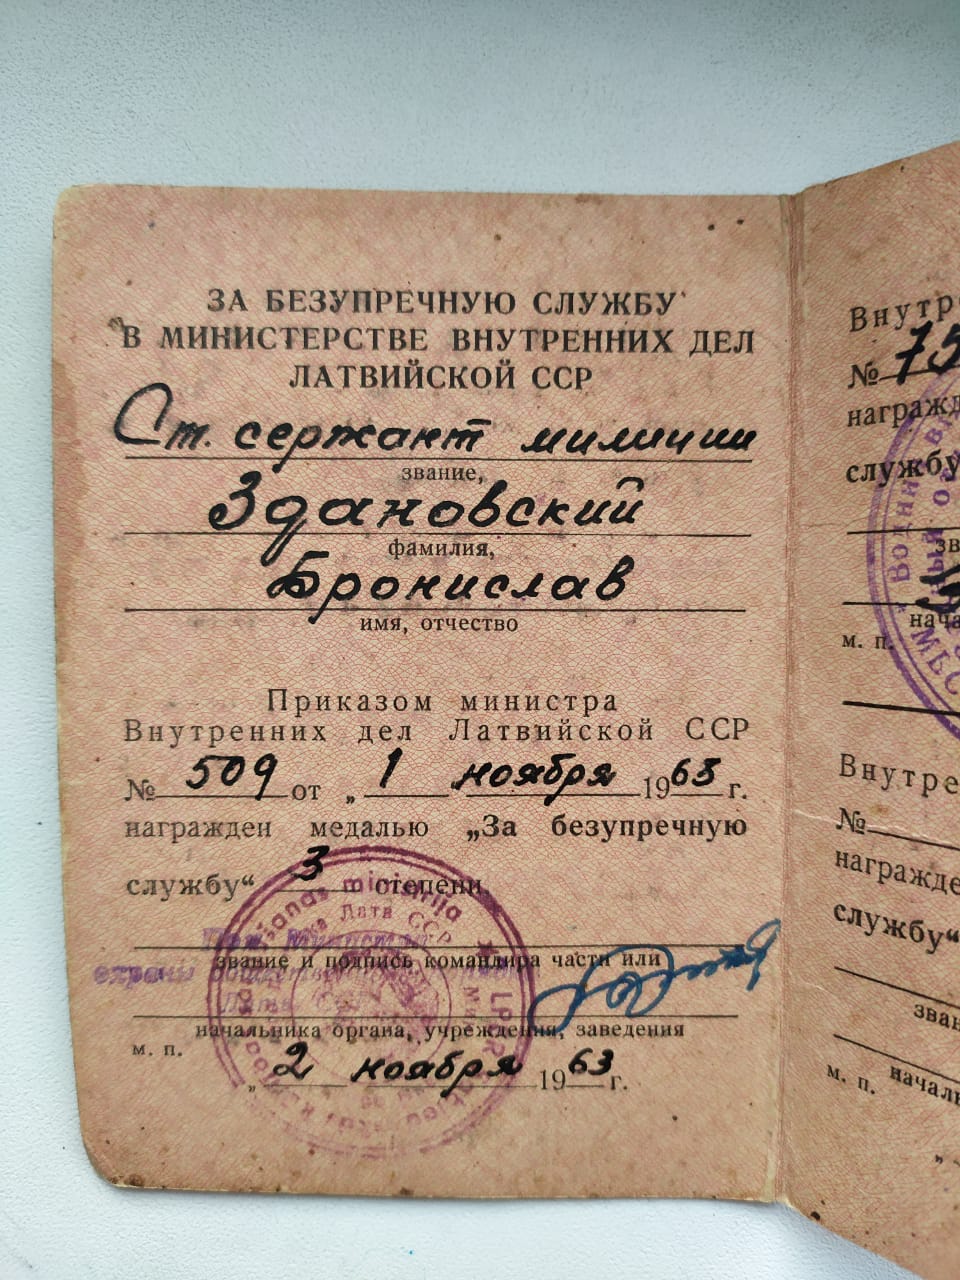 ЗА БЕЗУПРЕЧНУЮ СЛУЖБУ
В МИНИСТЕРСТВЕ ВНУТРЕННИХ ДЕЛ
ЛАТВИЙСКОЙ ССР
Ст. сержант милиции
звание,
Здановский
фамилия,
Бронислав
имя, отчество
Приказом министра
Внутренних дел Латвийской ССР
№ 509 от „ 1 ноября 1963 г.
награжден медалью „За безупречную
службу“ 3 степени
звание и подпись командира части или
начальника органа, учреждения, заведения
м. п.
„ 2 ноября 1963 г.
Внутре
№ 75
награжд
службу
зв
нача
м. п.
Внутре
№
награжде
службу“
зван
началь
м. п.